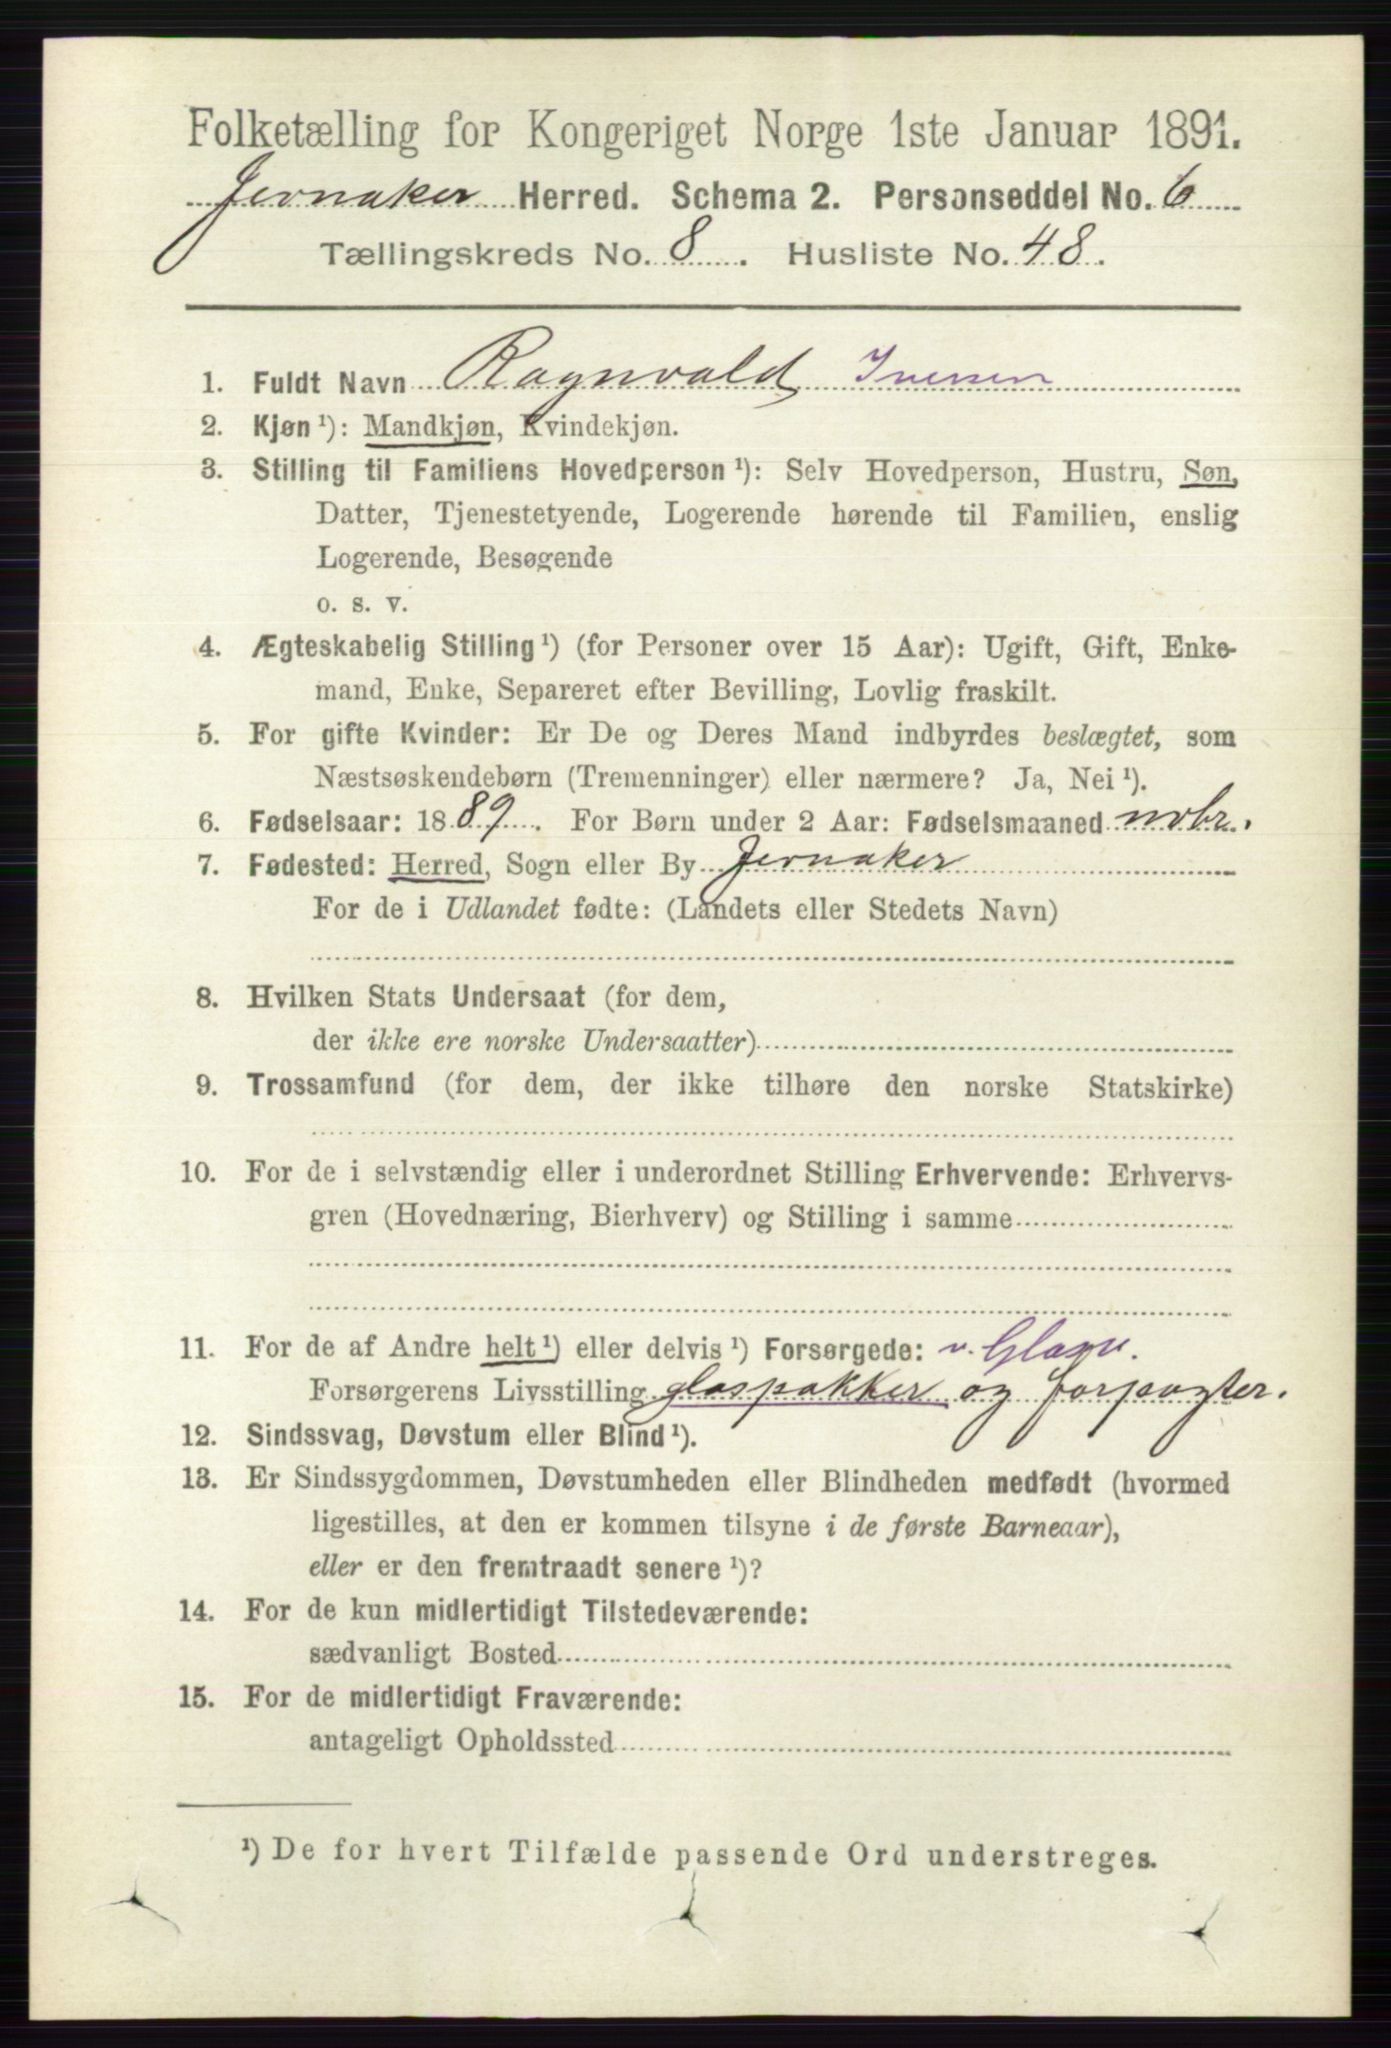 Folketælling for Kongeriget Norge 1ste Januar 1891.
Jevnaker Herred. Schema 2. Personseddel No. 6
Tællingskreds No. 8. Husliste No. 48.
1. Fuldt Navn Ragnvald Iversen
2. Kjøn ¹): Mandkjøn, Kvindekjøn.
3. Stilling til Familiens Hovedperson ¹): Selv Hovedperson, Hustru, Søn,
Datter, Tjenestetyende, Logerende hørende til Familien, enslig
Logerende, Besøgende
o. s. v.
4. Ægteskabelig Stilling ¹) (for Personer over 15 Aar): Ugift, Gift, Enke-
mand, Enke, Separeret efter Bevilling, Lovlig fraskilt.
5. For gifte Kvinder: Er De og Deres Mand indbyrdes beslægtet, som
Næstsøskendebørn (Tremenninger) eller nærmere? Ja, Nei ¹).
6. Fødselsaar: 1889. For Børn under 2 Aar: Fødselsmaaned novbr.
7. Fødested: Herred, Sogn eller By Jevnaker
For de i Udlandet fødte: (Landets eller Stedets Navn)
8. Hvilken Stats Undersaat (for dem,
der ikke ere norske Undersaatter)
9. Trossamfund (for dem, der ikke tilhøre den norske Statskirke)
10. For de i selvstændig eller i underordnet Stilling Erhvervende: Erhvervs-
gren (Hovednæring, Bierhverv) og Stilling i samme
11. For de af Andre helt ¹) eller delvis ¹) Forsørgede: v. Glasv.
Forsørgerens Livsstilling glaspakker og forpagter.
12. Sindssvag, Døvstum eller Blind ¹).
13. Er Sindssygdommen, Døvstumheden eller Blindheden medfødt (hvormed
ligestilles, at den er kommen tilsyne i de første Barneaar),
eller er den fremtraadt senere ¹)?
14. For de kun midlertidigt Tilstedeværende:
sædvanligt Bosted
15. For de midlertidigt Fraværende:
antageligt Opholdssted
¹) De for hvert Tilfælde passende Ord understreges.